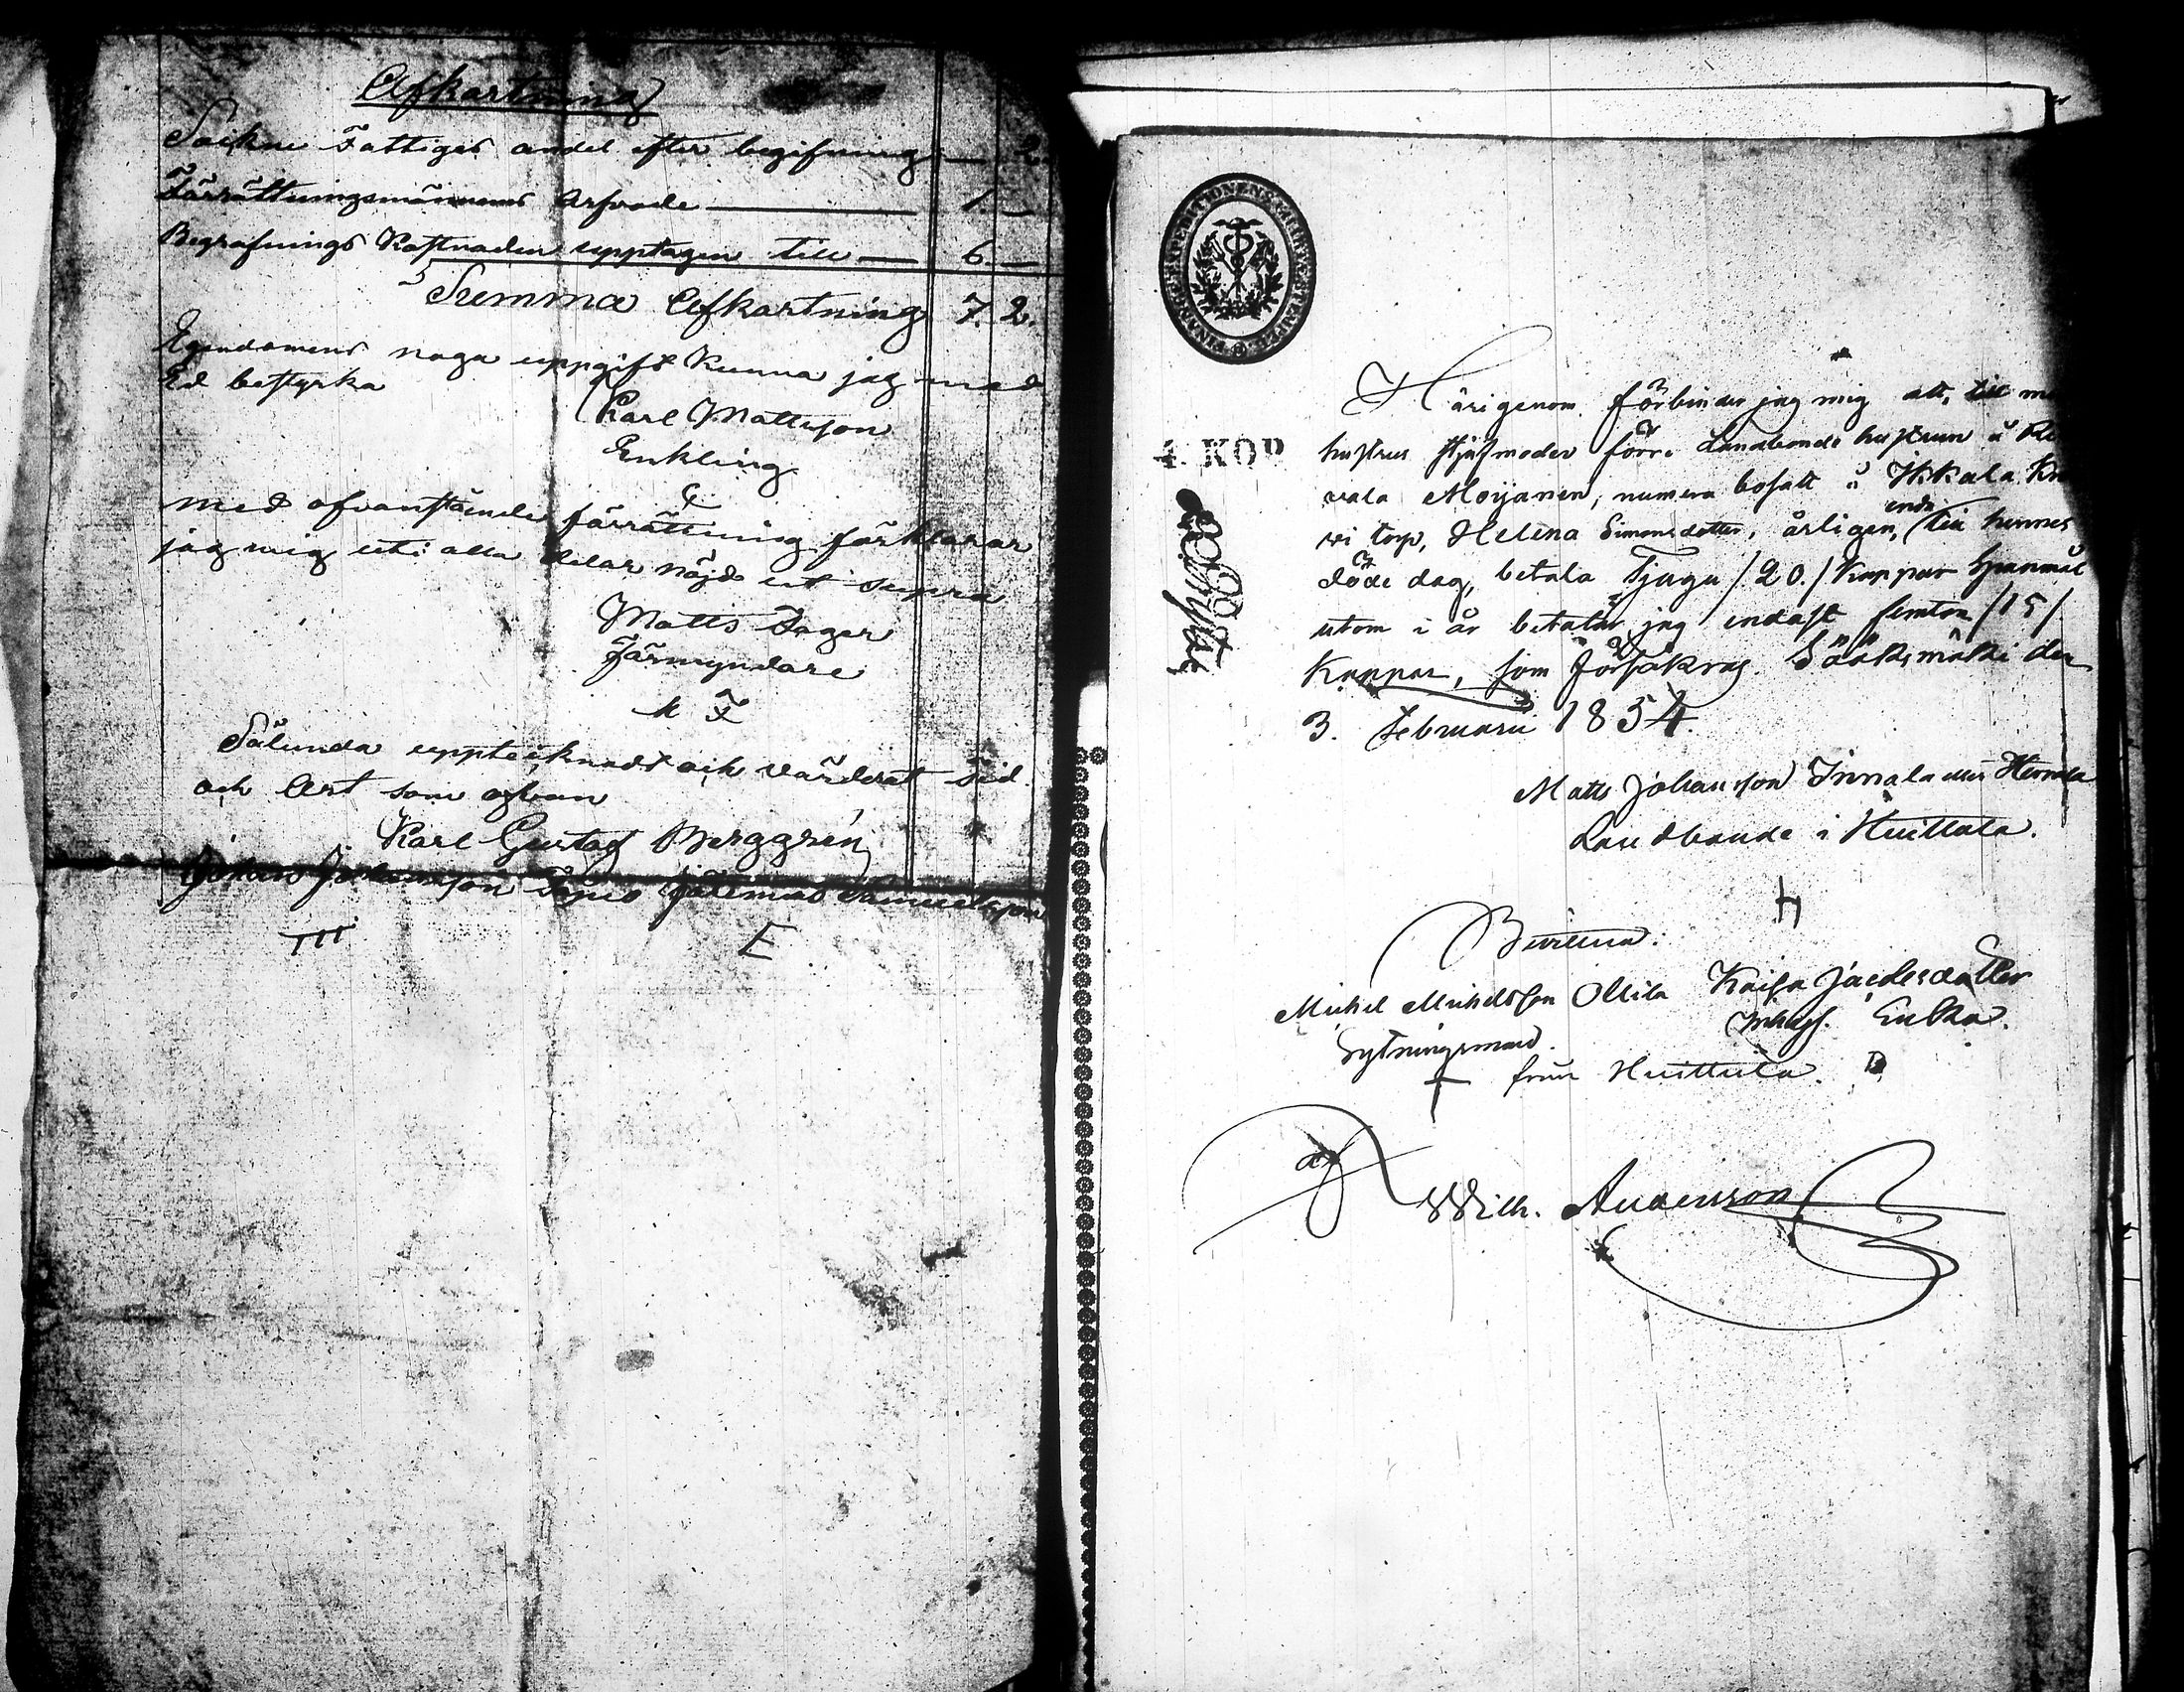 Afkartning
Sockne Fattiges andel efter begifning — 2.
Förrättningsmännens Arfvode — 1. —
Begrafnings Kostnaden upptagen till — 6. —
Summa Afkartning 7. 2.
Egendomens noga uppgift kunna jag med
Ed bestyrka
Karl Mattsson
Enkling
Med ofvanstående förrättning förklarar
jag mig uti alla delar nöjd ut supra
Matts Jager
Förmyndare
M F
Sålunda upptecknadt och värderat tid
och Art som ofvan
Karl Gustaf Berggrén
Johan Johansson Jeremias Samuelsson
E
CHARTÆ
4. KOP.
Härigenom förbinder jag mig att, till m
hustrus stjufmoder förre Landbonde hustrun å
vala Moijanen, numera bosatt å Ikkala
vi torp, Helena Simonsdotter, årligen, till hennes
döde dag, betala Tjugu /20./ Kappar Spanmål
utom i år betalar jag endast femton /15/
Kappar, som försäkras. Sääksmäki den
3. Februarii 1854.
Matts Johansson Innala eller Hennala
Landbonde i Huittula.
Bevittna:
Michel Michelsson Ollila Kaisa Jacobsdotter
Sytningsman. Inhys. Enka.
från Huittula.
af
Wilh. Andersson